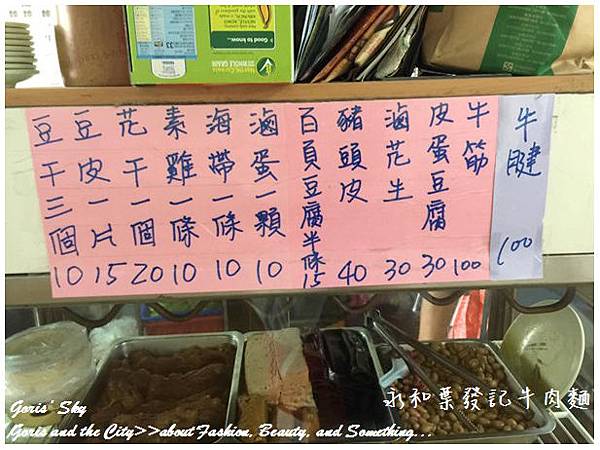 牛腱 100
牛筋 100
皮蛋豆腐 30
滷花生 30
豬頭皮 40
百頁豆腐半條 15
滷蛋一顆 10
海帶一條 10
素雞一條 10
花干一個 20
豆皮一片 15
豆干三個 10
Good to know...
WHOLE GRAIN
永和葉發記牛肉麵
Goris' Sky
Goris and the City>>about Fashion, Beauty, and Something...